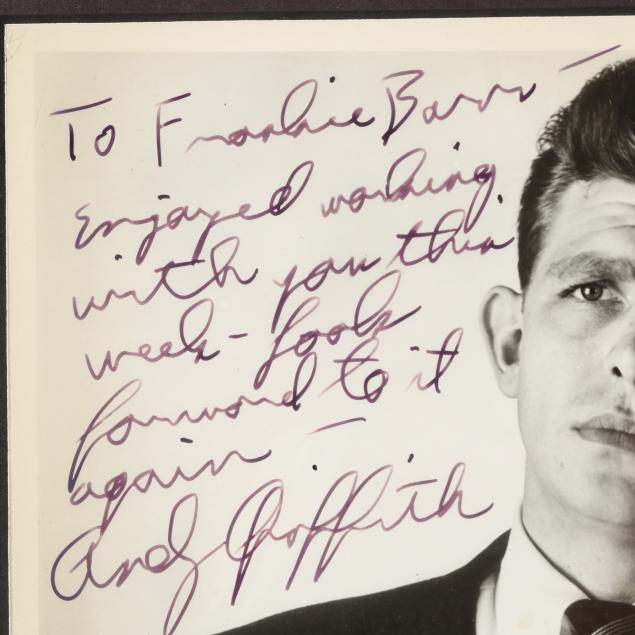 To Frankie Barr —
Enjoyed working
with you this
week - look
forward to it
again —
Andy Griffith